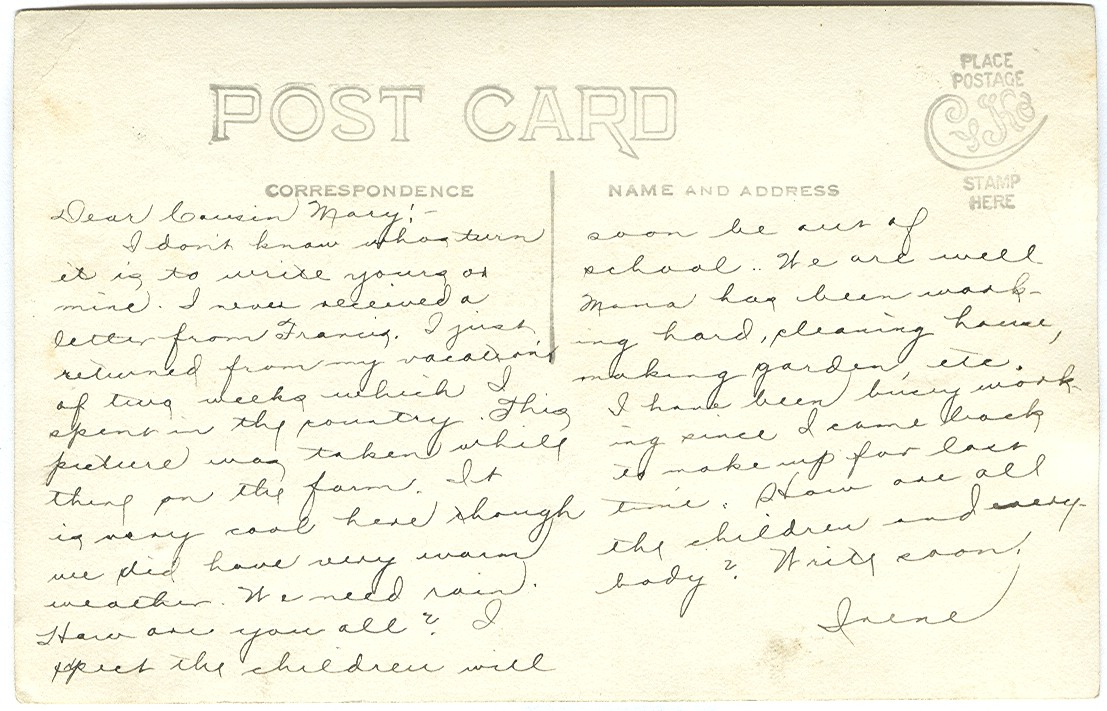 POST CARD
PLACE
POSTAGE
CYKO
STAMP
HERE
CORRESPONDENCE
NAME AND ADDRESS
Dear Cousin Mary:-
I don't know whos turn
it is to write yours or
mine. I never received a
letter from Francis. I just
returned from my vacation
of two weeks which I
spent in the country. This
picture was taken while
there on the farm. It
is very cool here though
we did have very warm
weather. We need rain.
How are you all? I
expect the children will
soon be out of
school.. We are well
Mama has been work-
ing hard, cleaning house,
making garden etc.
I have been busy work-
ing since I came back
to make up for lost
time. How are all
the children and every-
body? Write soon.
Irene